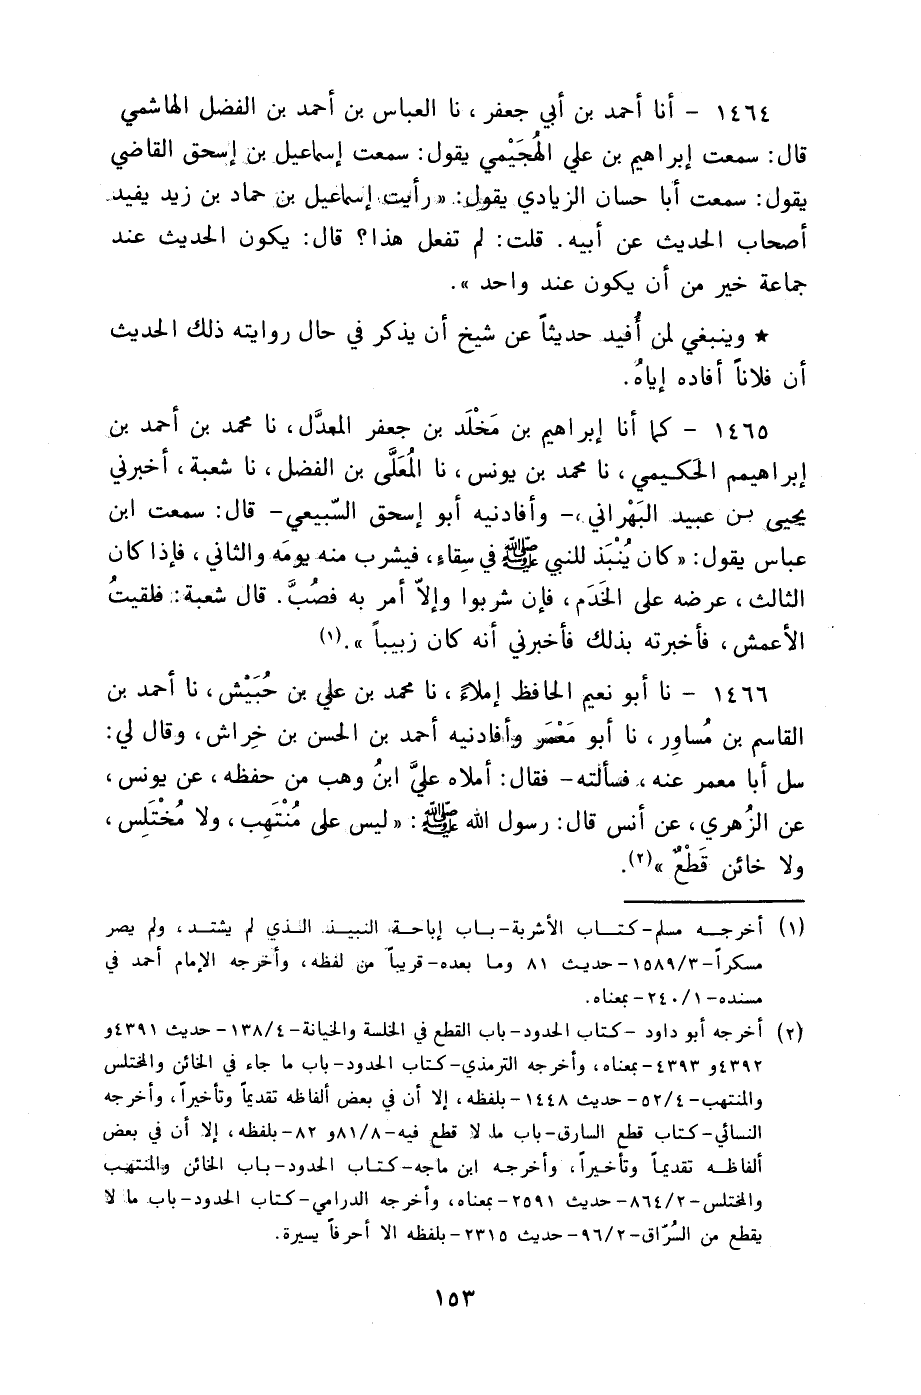 ١٤٦٤ - أنا أحمد بن أبي جعفر ، نا العباس بن أحمد بن الفضل الهاشمي
قال: سمعت إبراهيم بن علي الهُجَيْمي يقول: سمعت إسماعيل بن إسحق القاضي
يقول: سمعت أبا حسان الزيادي يقول: « رأيت إسماعيل بن حماد بن زيد يفيد
أصحاب الحديث عن أبيه. قلت: لم تفعل هذا؟ قال: يكون الحديث عند
جماعة خير من أن يكون عند واحد ».
★ وينبغي لمن أُفيد حديثاً عن شيخ أن يذكر في حال روايته ذلك الحديث
أن فلاناً أفاده إياهُ.
١٤٦٥ - كما أنا إبراهيم بن مَخْلَد بن جعفر المعدَّل، نا محمد بن أحمد بن
إبراهيمم الحَكيمي، نا محمد بن يونس، نا المُعَلَّى بن الفضل، نا شعبة، أخبرني
يحيى بن عبيد البَهْراني،- وأفادنيه أبو إسحق السَّبيعي- قال: سمعت ابن
عباس يقول: « كان يُنْبَذ للنبي ﷺ في سِقاء، فيشرب منه يومَه والثاني، فإذا كان
الثالث، عرضه على الخَدَم، فإن شربوا وإلاّ أمر به فصُبَّ. قال شعبة: فلقيتُ
الأعمش، فأخبرته بذلك فأخبرني أنه كان زبيباً ».(١)
١٤٦٦ - نا أبو نعيم الحافظ إملاءً، نا محمد بن علي بن حُبَيْش، نا أحمد بن
القاسم بن مُساوِر، نا أبو مَعْمَر وأفادنيه أحمد بن الحسن بن خِراش، وقال لي:
سل أبا معمر عنه، فسألته- فقال: أملاه عليَّ ابنُ وهب من حفظه، عن يونس،
عن الزُهري، عن أنس قال: رسول الله ﷺ: « ليس على مُنْتَهِب، ولا مُخْتَلِس،
ولا خائن قَطْعٌ »(٢).
(١) أخرجه مسلم-كتاب الأشربة-باب إباحة النبيذ الذي لم يشتد، ولم يصر
مسكراً-١٥٨٩/٣-حديث ٨١ وما بعده-قريباً من لفظه، وأخرجه الإمام أحمد في
مسنده-٢٤٠/١-بمعناه.
(٢) أخرجه أبو داود -كتاب الحدود-باب القطع في الخلسة والخيانة-١٣٨/٤-حديث ٤٣٩١و
٤٣٩٢و ٤٣٩٣-بمعناه، وأخرجه الترمذي-كتاب الحدود-باب ما جاء في الخائن والمختلس
والمنتهب-٥٢/٤-حديث ١٤٤٨-بلفظه، إلا أن في بعض ألفاظه تقديماً وتأخيراً، وأخرجه
النسائي-كتاب قطع السارق-باب ما لا قطع فيه-٨١/٨و ٨٢-بلفظه، إلا أن في بعض
ألفاظه تقديماً وتأخيراً، وأخرجه ابن ماجه-كتاب الحدود-باب الخائن والمنتهب
والمختلس-٨٦٤/٢-حديث ٢٥٩١-بمعناه، وأخرجه الدرامي-كتاب الحدود-باب ما لا
يقطع من السُرّاق-٩٦/٢-حديث ٢٣١٥-بلفظه الا أحرفاً يسيرة.
١٥٣